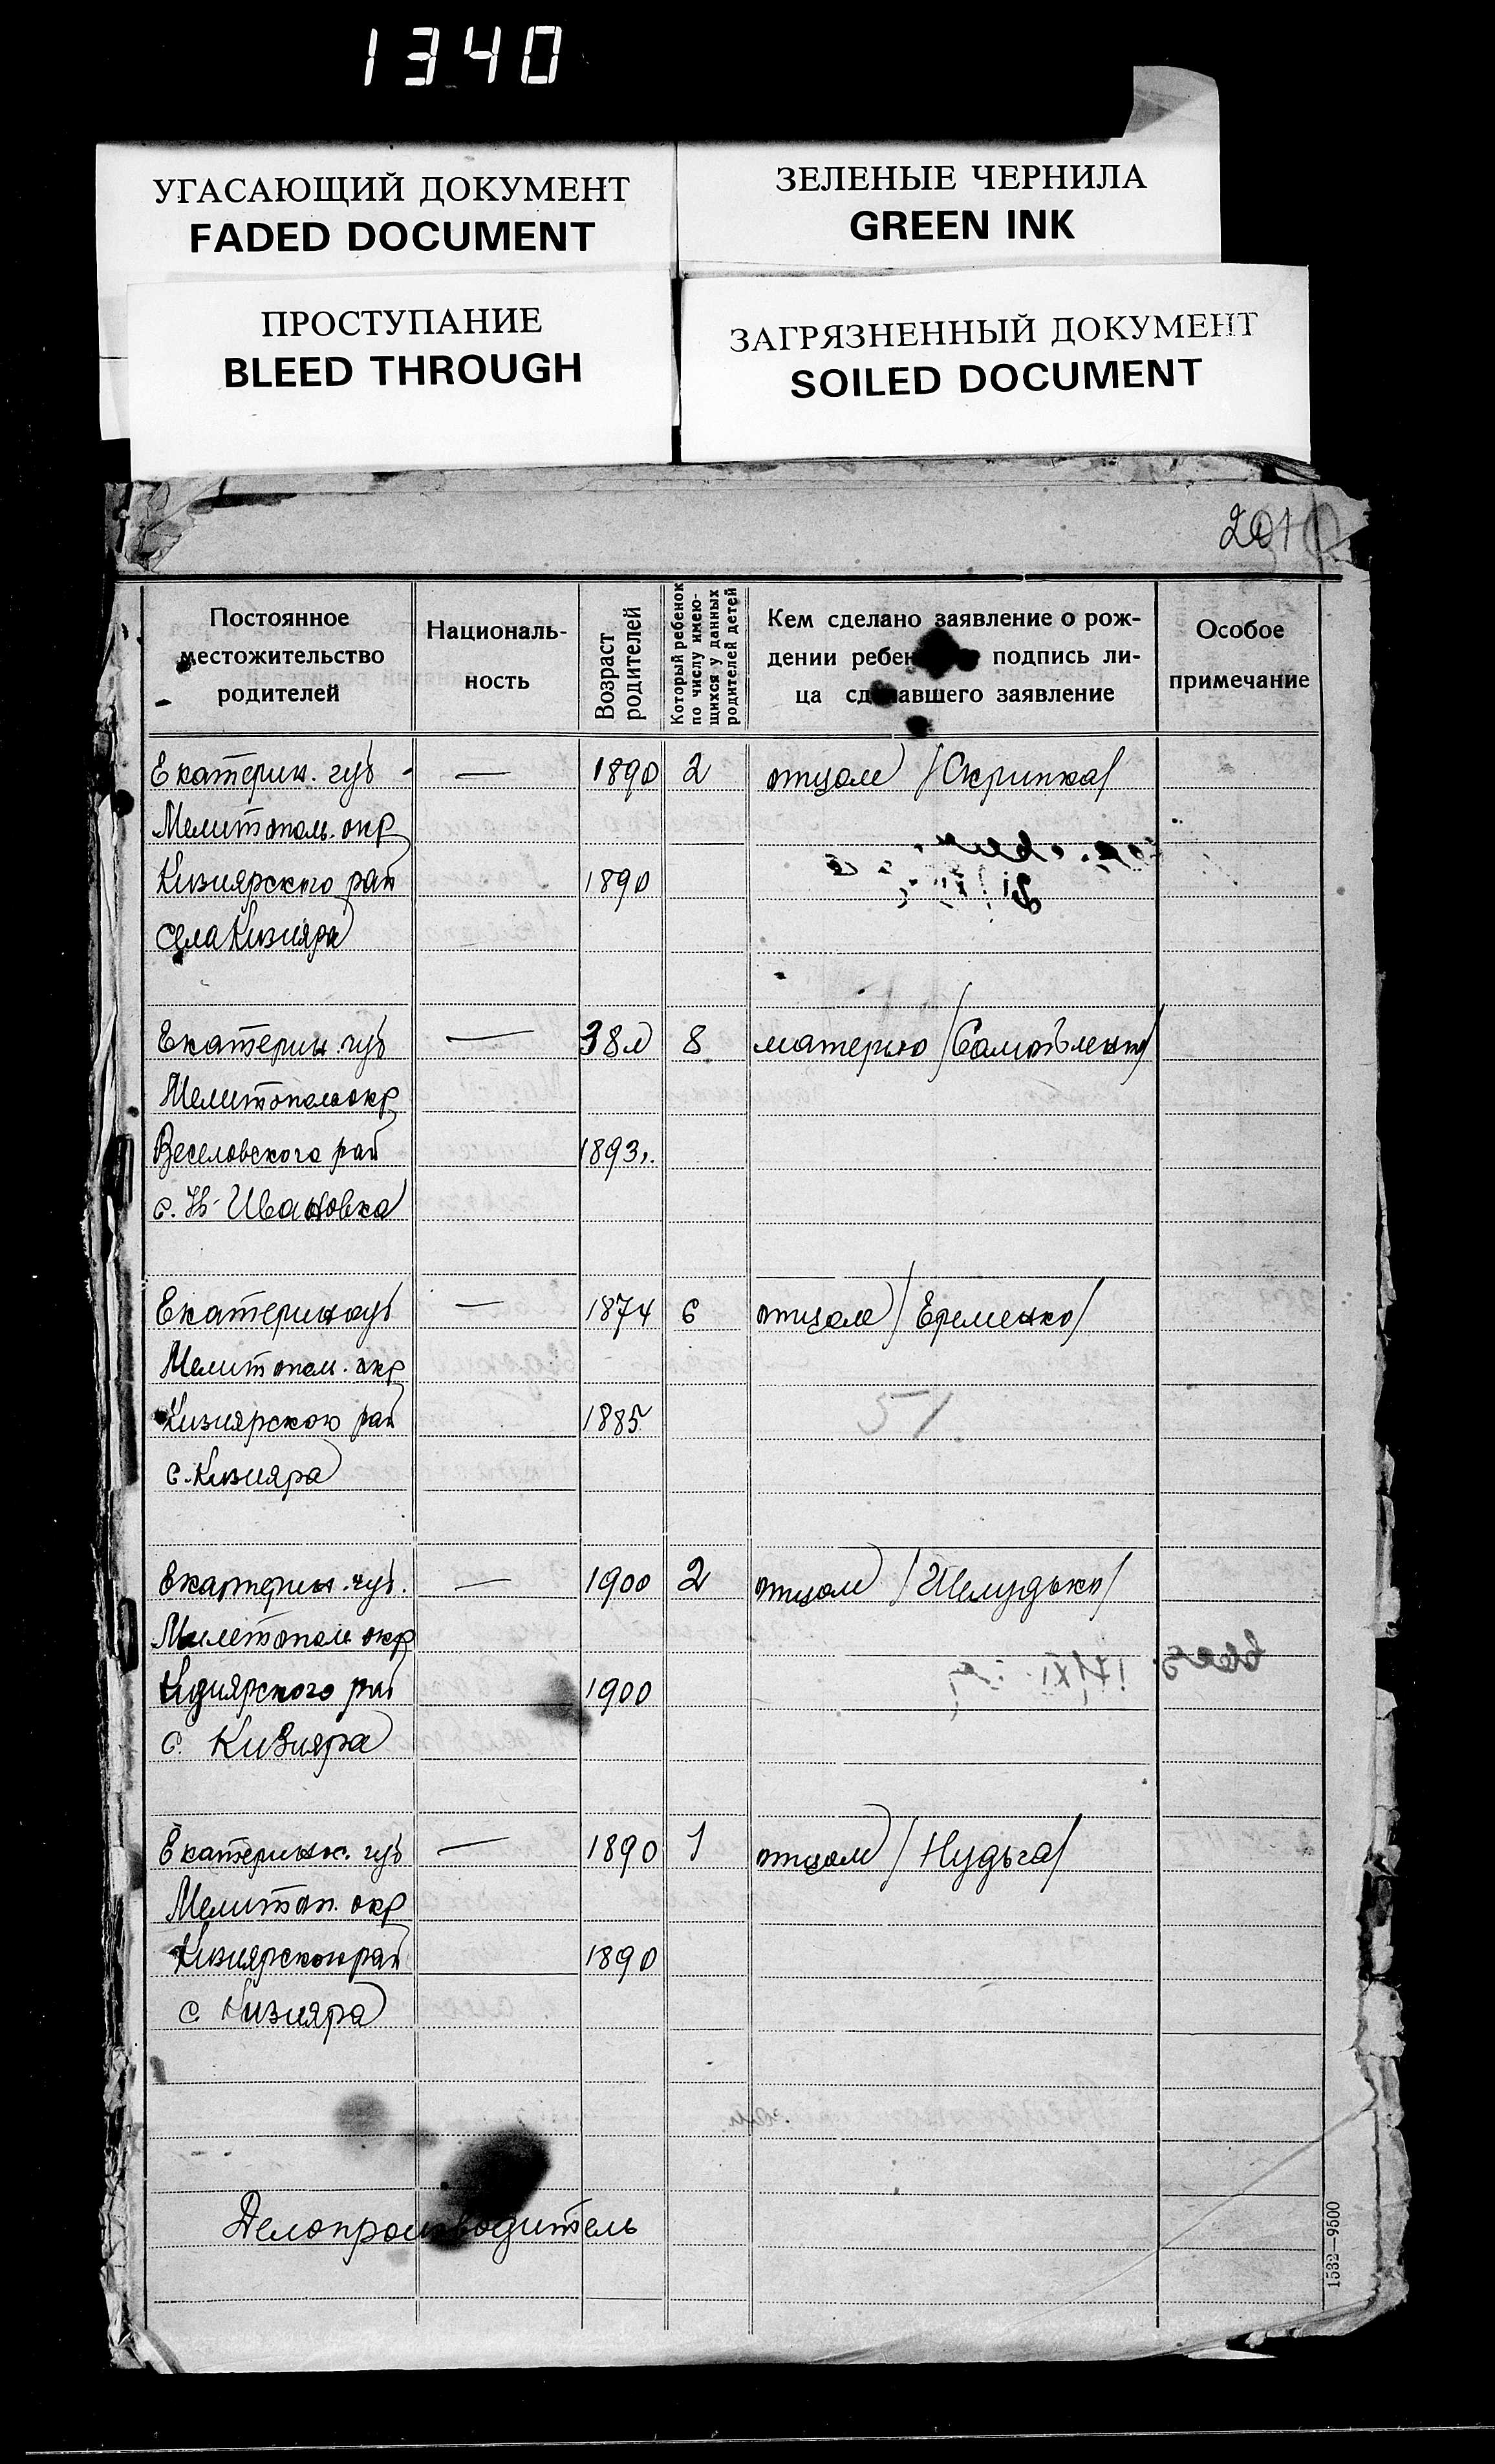 1340
УГАСАЮЩИЙ ДОКУМЕНТ
FADED DOCUMENT
ЗЕЛЕНЫЕ ЧЕРНИЛА
GREEN INK
ПРОСТУПАНИЕ
BLEED THROUGH
ЗАГРЯЗНЕННЫЙ ДОКУМЕНТ
SOILED DOCUMENT
201
Постоянное
местожительство
родителей
Националь-
ность
Возраст
родителей
Который ребенок
по числу имею-
щихся у данных
родителей детей
Кем сделано заявление о рож-
дении ребен подпись ли-
ца сделавшего заявление
Особое
примечание
Екатерин. губ — 1890 2 отцом /Скрипка/
Мелитополь. окр
Кизиярского рай 1890
села Кизияра
Екатерин. губ — 38 л 8 матерью /Самойленко/
Мелитополь окр
Веселовского рай 1893.
с. Н-Ивановка
Екатерин губ — 1874 6 отцом /Еременко/
Мелитопол. окр
Кизиярского рай 1885
51.
с. Кизияра
Екатерин. губ. — 1900 2 отцом /Шелудько/
Мелитополь окр
Кизиярского рай 1900
с. Кизияра
Екатеринос. губ — 1890 1 отцом /Нудьга/
Мелитоп. окр
Кизиярского рай 1890
с Кизияра
Делопроизводитель
1532—9500